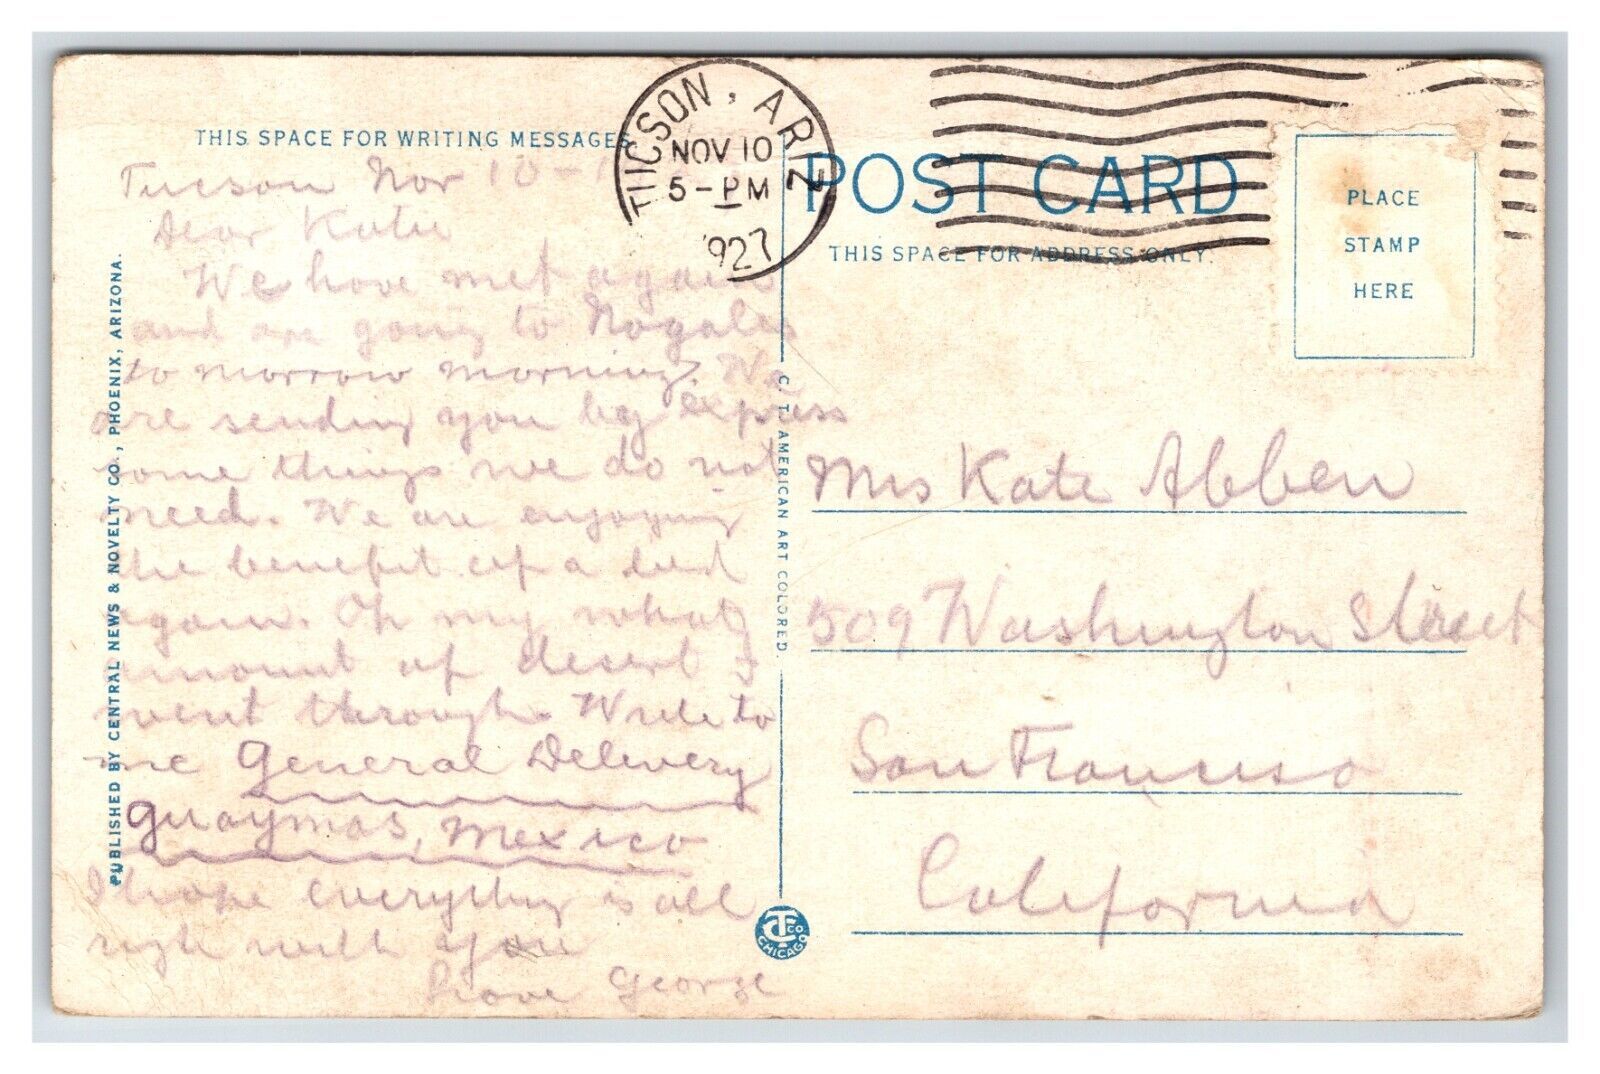 THIS SPACE FOR WRITING MESSAGES
TUCSON, ARIZ
NOV 10
5-PM
1927
POST CARD
THIS SPACE FOR ADDRESS ONLY.
PLACE
STAMP
HERE
Tucson Nov 10-
Dear Kate
We have met again
and are going to Nogales
to morrow morning. We
are sending you by express
some things we do not
need. We are enjoying
the benefit of a bed
again. Oh my what
amount of desert I
went through. Write to
me General Delivery
Guaymas, Mexico
I hope everything is all
right with you
Love George
Mrs Kate Abben
509 Washington Street
San Francisco
California
PUBLISHED BY CENTRAL NEWS & NOVELTY CO., PHOENIX, ARIZONA.
C. T. AMERICAN ART COLORED.
CT CO
CHICAGO